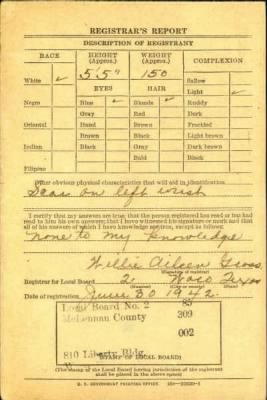 REGISTRAR'S REPORT
DESCRIPTION OF REGISTRANT
RACE HEIGHT (Approx.) WEIGHT (Approx.) COMPLEXION
White ✓ 5'5" 150 Sallow
EYES HAIR Light ✓
Negro Blue ✓ Blonde ✓ Ruddy
Gray Red Dark
Oriental Hazel Brown Freckled
Brown Black Light brown
Indian Black Gray Dark brown
Bald Black
Filipino
Other obvious physical characteristics that will aid in identification
Scar on left wrist
I certify that my answers are true; that the person registered has read or has had
read to him his own answers; that I have witnessed his signature or mark and that
all of his answers of which I have knowledge are true, except as follows:
None to my knowledge
Willie Aileen
(Signature of registrar)
Registrar for Local Board 2 Waco Texas
(Number) (City or county) (State)
Date of registration June 30 1942
Local Board No. 2 85
McLennan County 309
002
810 Liberty Bldg.
(STAMP OF LOCAL BOARD)
(The stamp of the Local Board having jurisdiction of the registrant
shall be placed in the above space)
U. S. GOVERNMENT PRINTING OFFICE